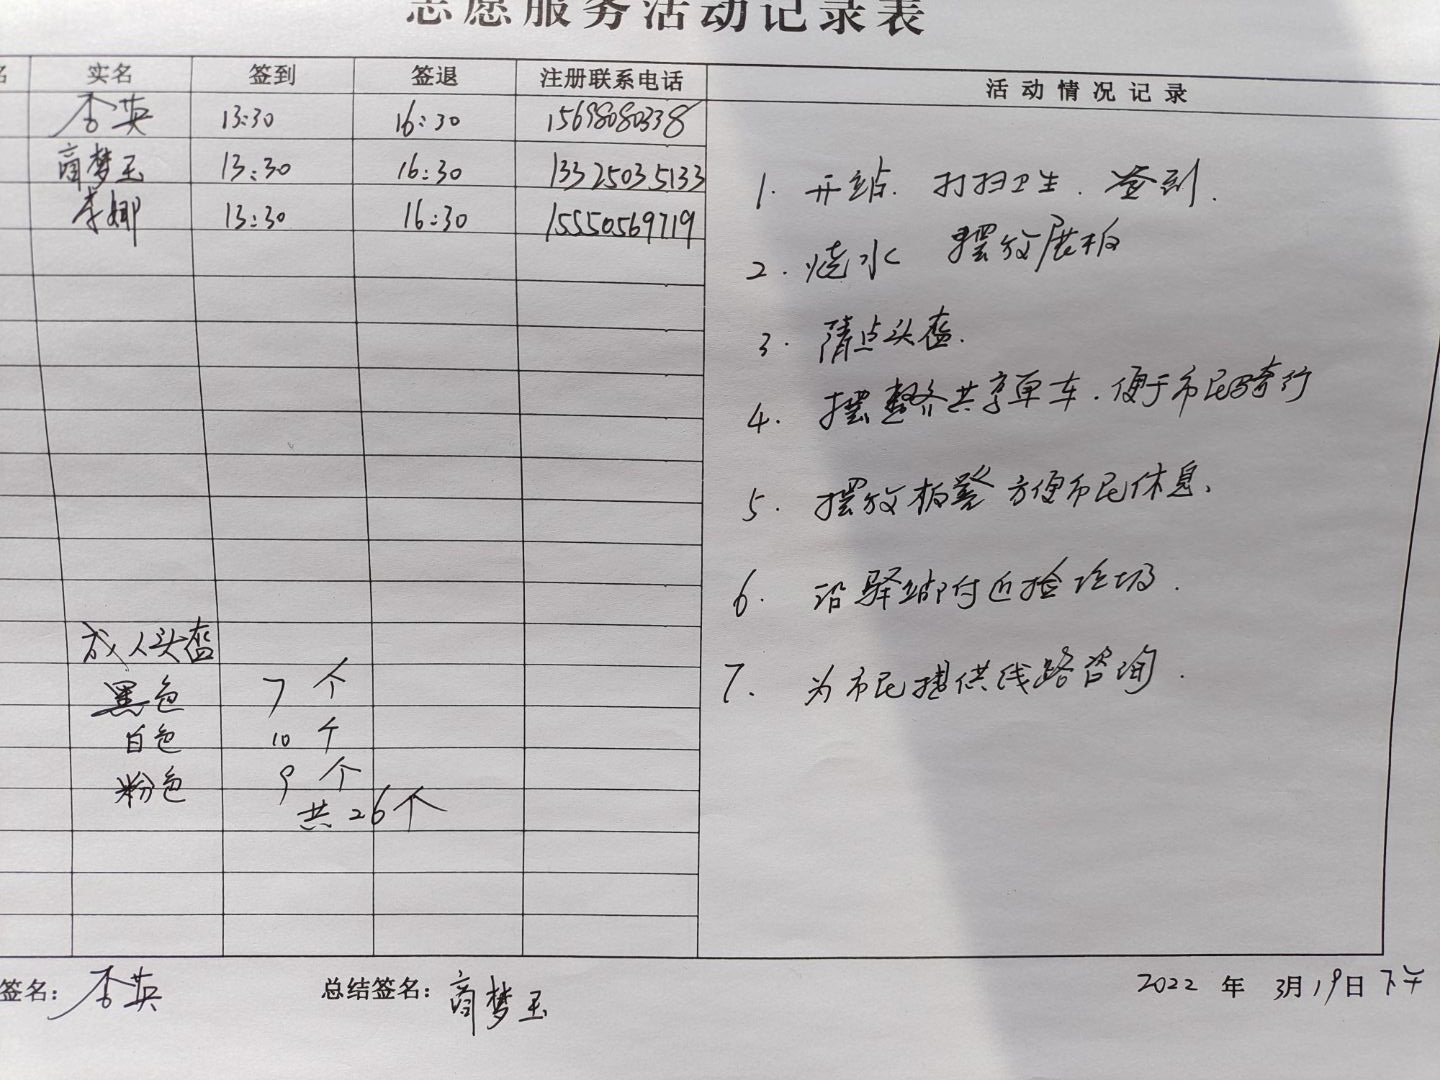 志愿服务活动记录表
名 实名 签到 签退 注册联系电话 活动情况记录
李英 13:30 16:30 15698080338
商梦玉 13:30 16:30 13325035133
李娜 13:30 16:30 15550569719
1. 开站. 打扫卫生. 签到.
2. 烧水 摆放展板
3. 清点头盔.
4. 摆整齐共享单车.便于市民骑行
5. 摆放板凳 方便市民休息、
6. 沿驿站附近捡垃圾.
7. 为市民提供线路咨询.
成人头盔
黑色 7个
白色 10个
粉色 9个
共26个
签名: 李英 总结签名: 商梦玉 2022 年 3月19日下午